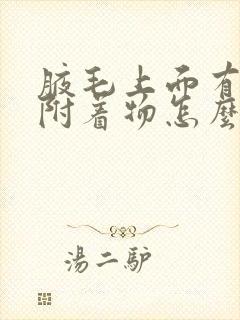 腋毛上面有
附着物怎麼
湯二驴